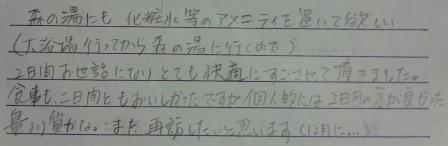 森の湯にも 化粧水等のアメニティを置いて欲しい
(大浴場行ってから森の湯に行くので)
2日間お世話になりとても快適にすごさせて頂きました。
食事も、二日間ともおいしかったですが個人的には2日目の方が良かった
量より質かな。また再訪したいと思います(12月に…)